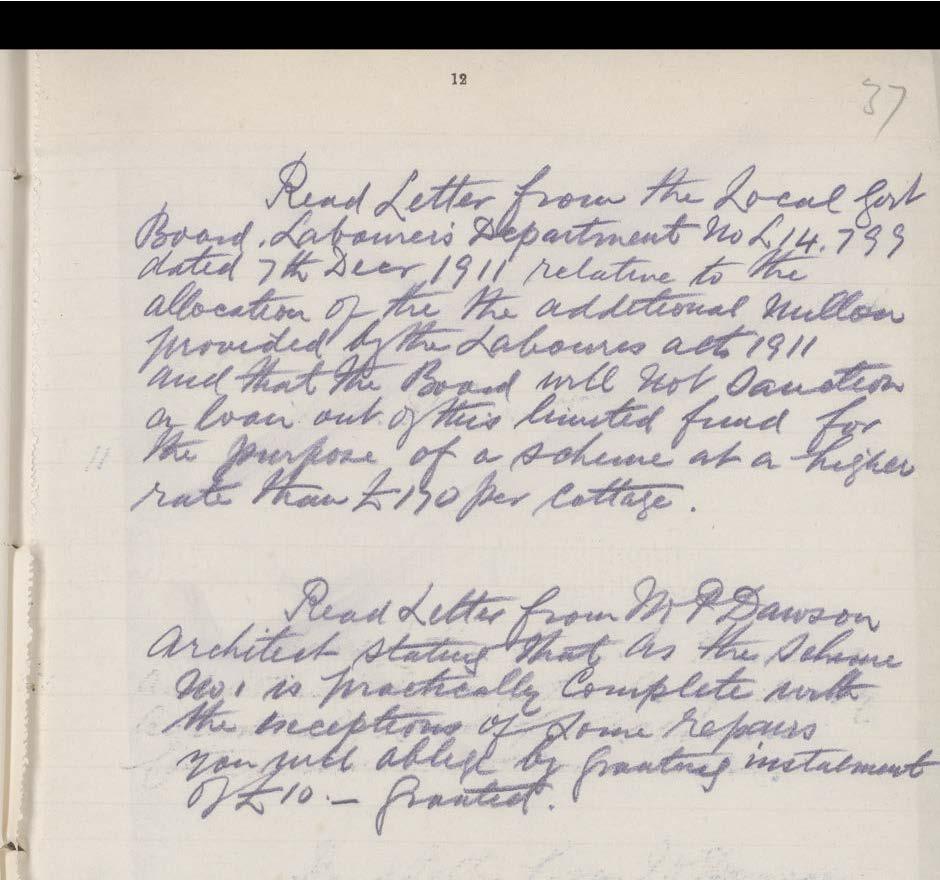 12
37
Read Letter from the Local Govt
Board, Labourers Department No L 14.799
dated 7th Decr 1911 relative to the
allocation of the the additional Million
provided by the Laboures act 1911
and that the Board will not Sanction
a loan out of this limited fund for
the purpose of a scheme at a higher
rate than £170 per Cottage.
Read Letter from Mr P Dawson
Architect stating that as the Scheme
No 1 is practically Complete with
the exceptions of some repairs
you will oblige by granting instalment
of £10.— Granted.